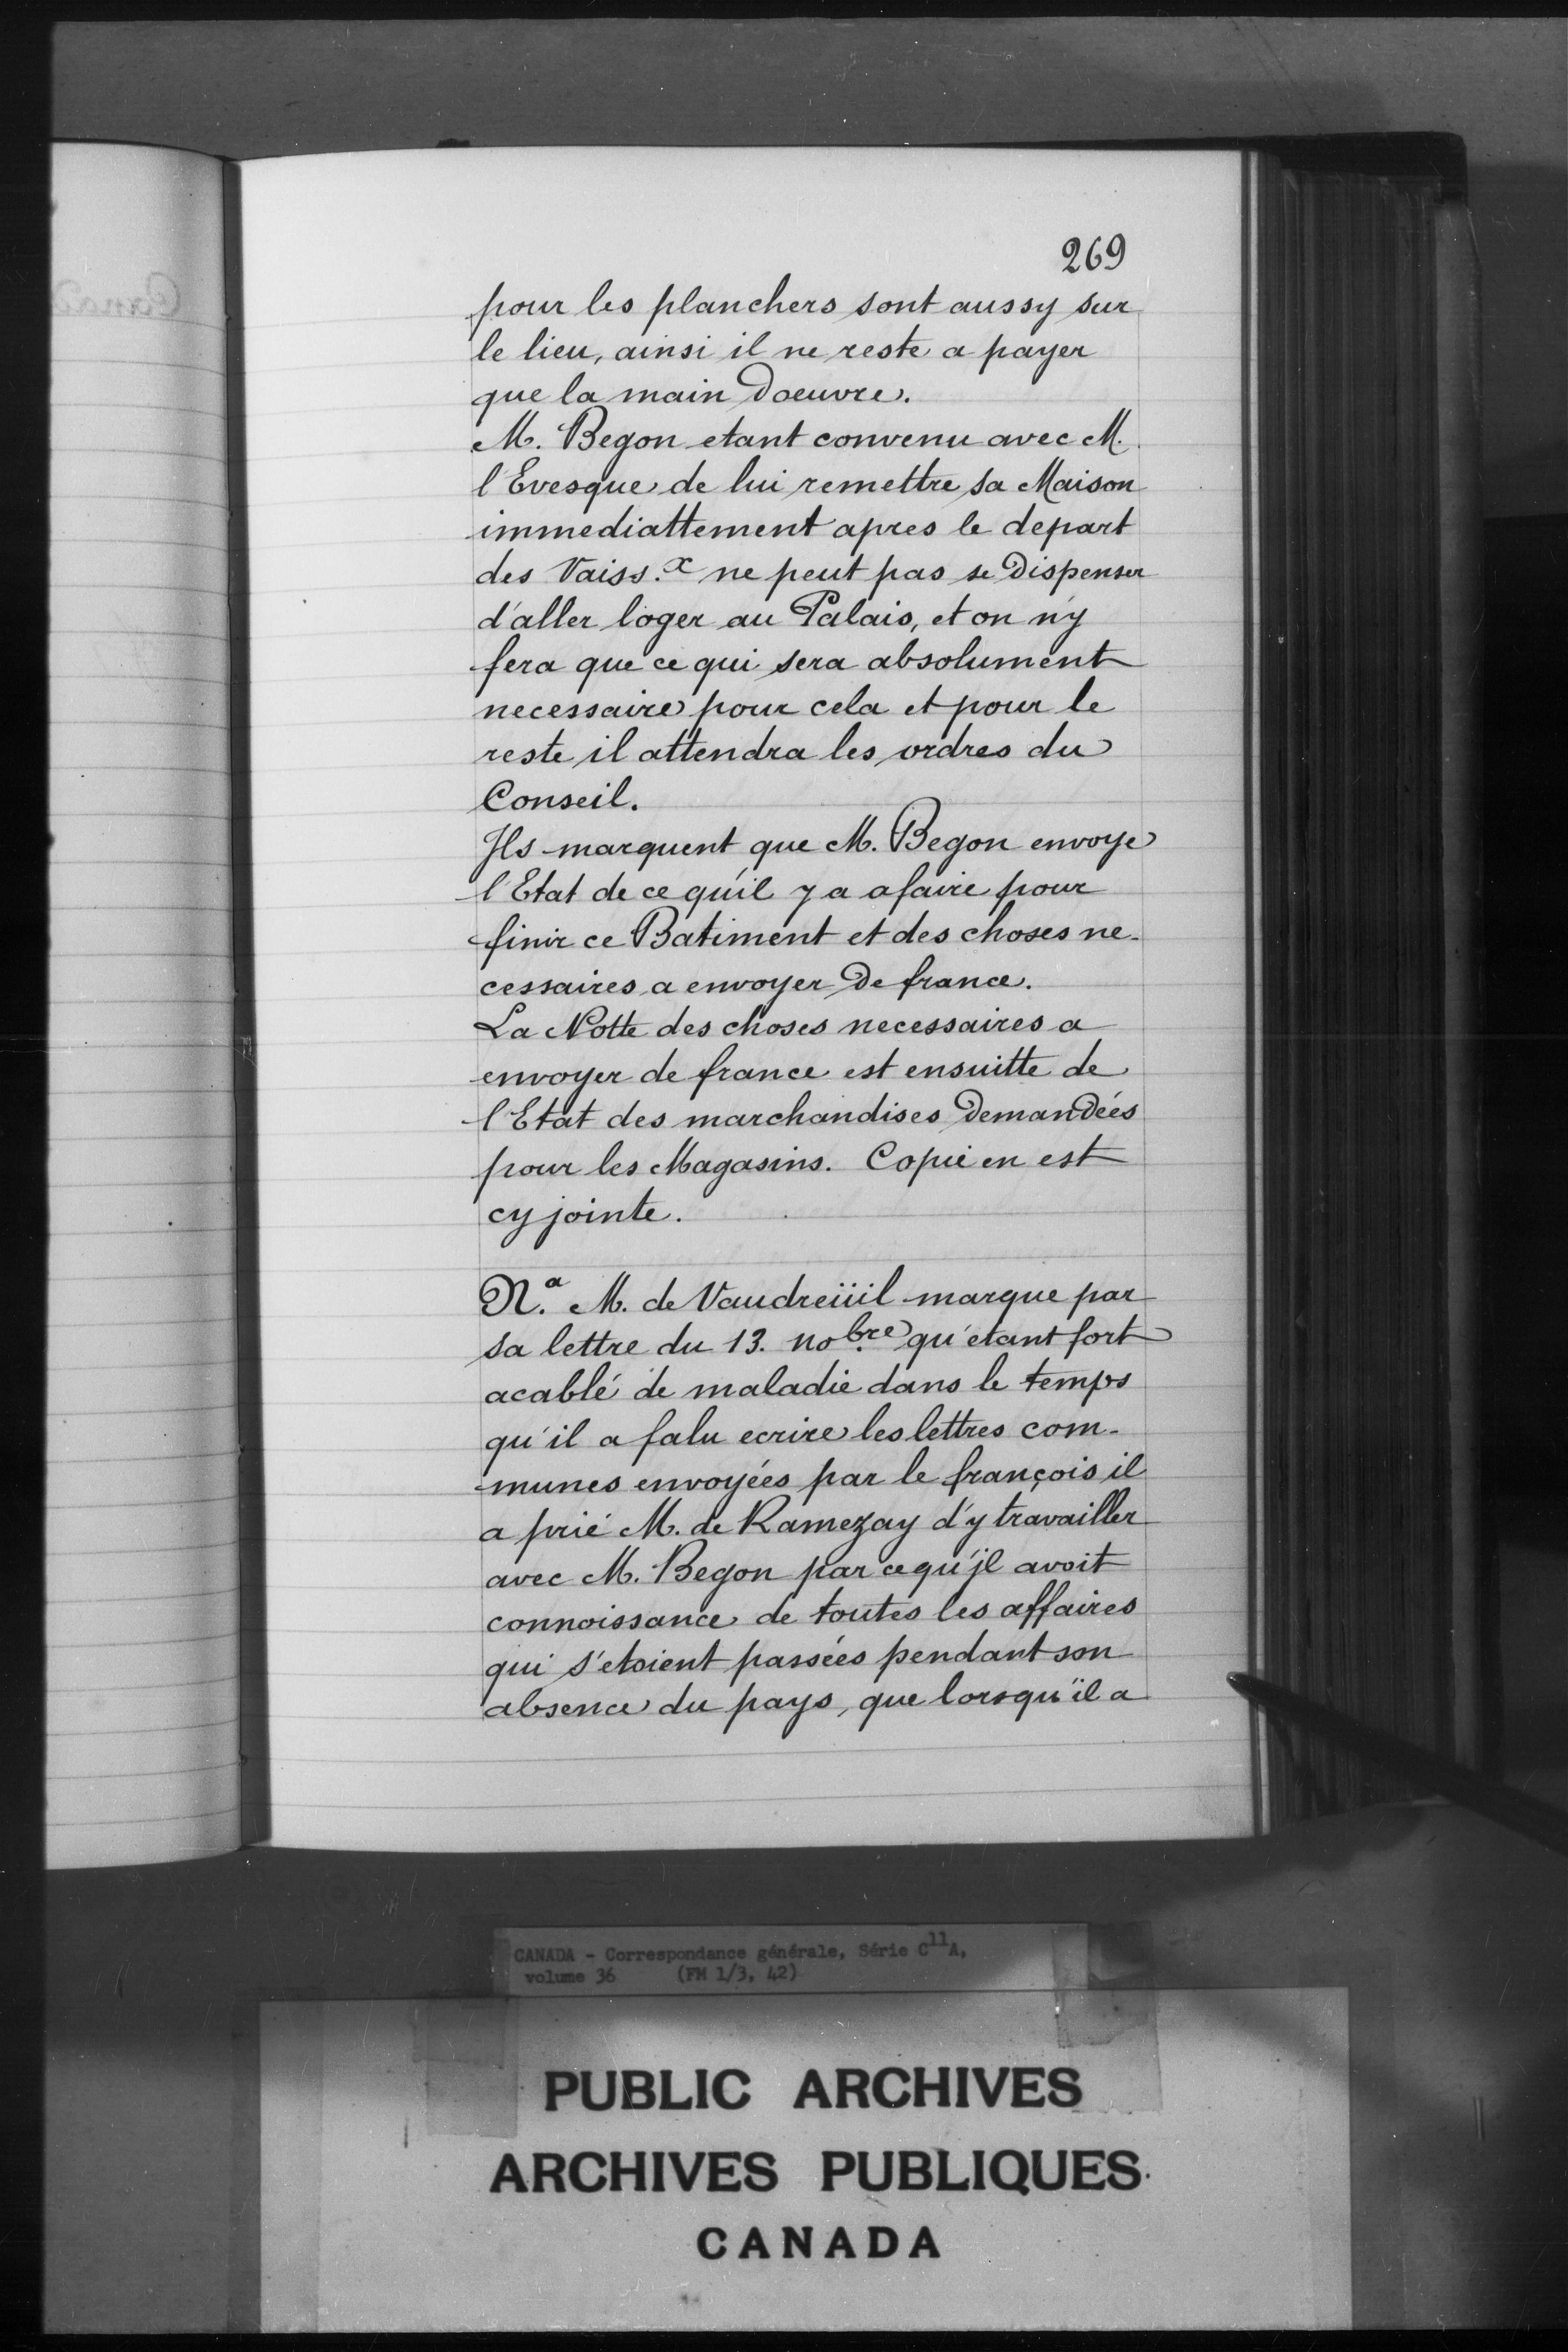 269
pour les planchers sont aussy sur
le lieu, ainsi il ne reste a payer
que la main Doeuvre.
M. Begon etant convenu avec M.
l'Evesque de lui remettre sa Maison
immediattement apres le depart
des Vaiss.x ne peut pas se Dispenser
d'aller loger au Palais, et on n'y
fera que ce qui sera absolument
necessaire pour cela et pour le
reste il attendra les ordres du
Conseil.
Ils marquent que M. Begon envoye
l'Etat de ce qu'il y a a faire pour
finir ce Batiment et des choses ne-
cessaires a envoyer De france.
La Notte des choses necessaires a
envoyer de france est ensuitte de
l'Etat des marchandises Demandées
pour les Magasins. Copie en est
cy jointe.
N.a M. de Vaudreüil marque par
sa lettre du 13. nobre qu'etant fort
acablé de maladie dans le temps
qu'il a falu ecrire les lettres com-
munes envoyées par le françois il
a prié M. de Ramezay d'y travailler
avec M. Begon par ce qu'jl avoit
connoissance de toutes les affaires
qui s'etoient passées pendant son
absence du pays, que lorsqu'il a
CANADA - Correspondance générale, Série C11A,
volume 36 (FM 1/3, 42)
PUBLIC ARCHIVES
ARCHIVES PUBLIQUES
CANADA